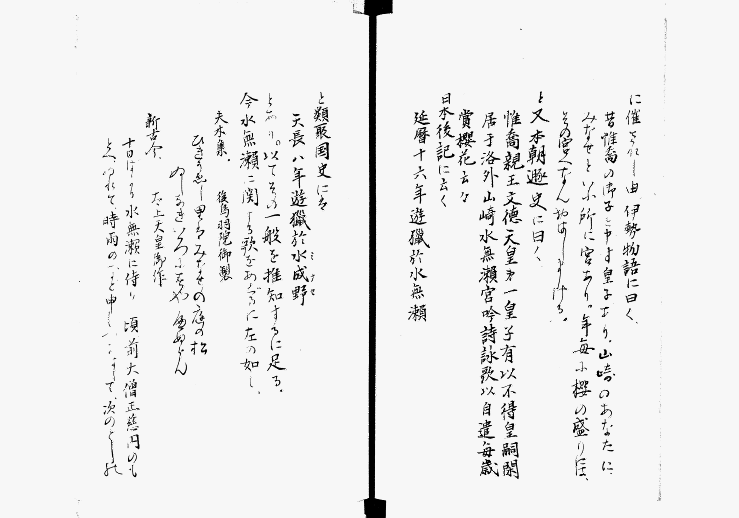 に催されし由 伊勢物語に曰く、
昔惟喬の御子と申す皇子ありり、山崎のあなたに
みなせと いふ所に宮あり。年毎に櫻の盛りには、
その宮へなんおはしましける。
と又本朝遯史に曰く、
惟喬親王文徳天皇第一皇子有以不得皇嗣閑
居于洛外山崎水無瀬宮吟詩詠歌以自遣毎歳
賞櫻花云々
日本後記に云く
延暦十六年遊獵於水無瀬
と類聚国史に
天長八年遊獵於水成野
とあり。以てその一般を推知するに足る。
今水無瀬に関する歌をあぐるに左の如し、
夫木集、 後鳥羽院御製
みなせの庭の松
新古今 太上天皇御作
十日 水無瀬に侍り 頃前大僧正慈円のも
とへ 時雨の と申し 次の